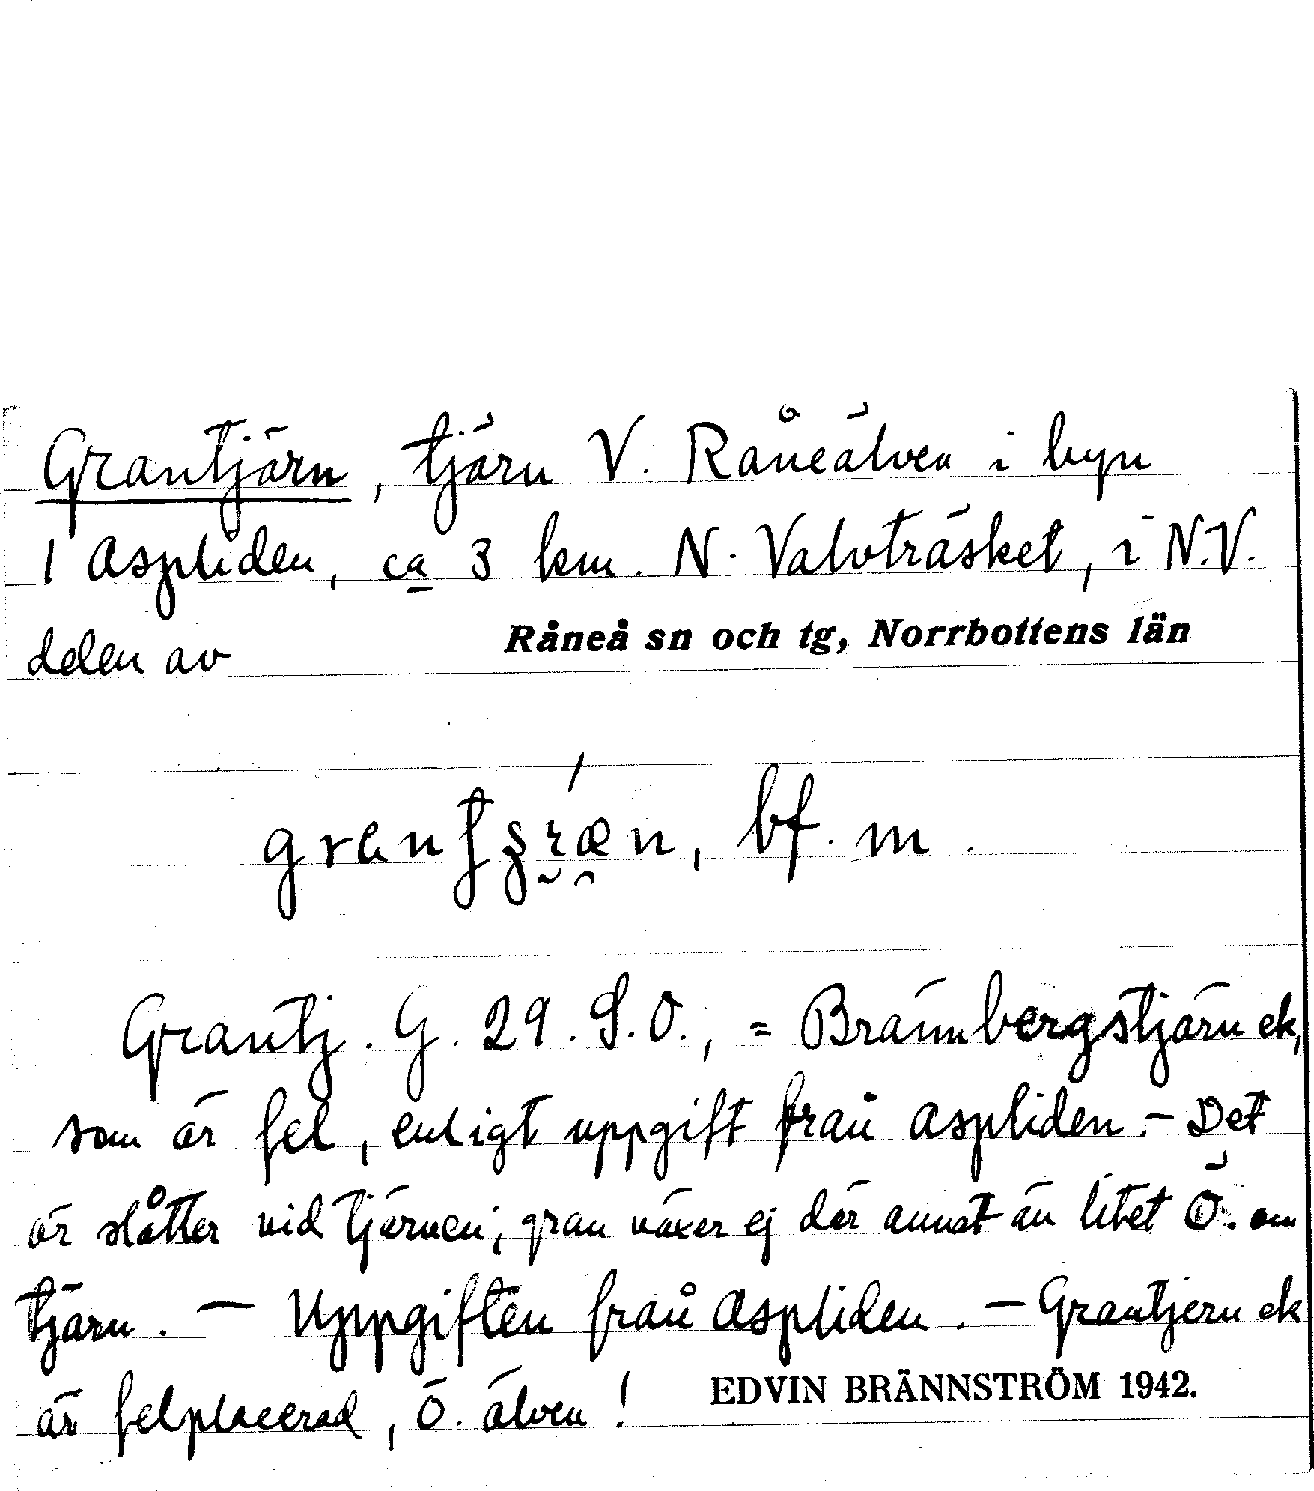 Grantjärn, tjärn V. Råneälven i byn
1 Aspliden, ca 3 km. N. Valvträsket, i N.V.
delen av Råneå sn och tg, Norrbottens län
bf. m.
Grantj. G. 29. S.O., = Brännbergstjärn ek,
som är fel, enligt uppgift från Aspliden. – Det
är slåtter vid tjärnen, gran växer ej där annat än litet Ö. om
tjärn. — Uppgiften från Aspliden. — Grantjern ek
är felplacerad, Ö. älven!
EDVIN BRÄNNSTRÖM 1942.